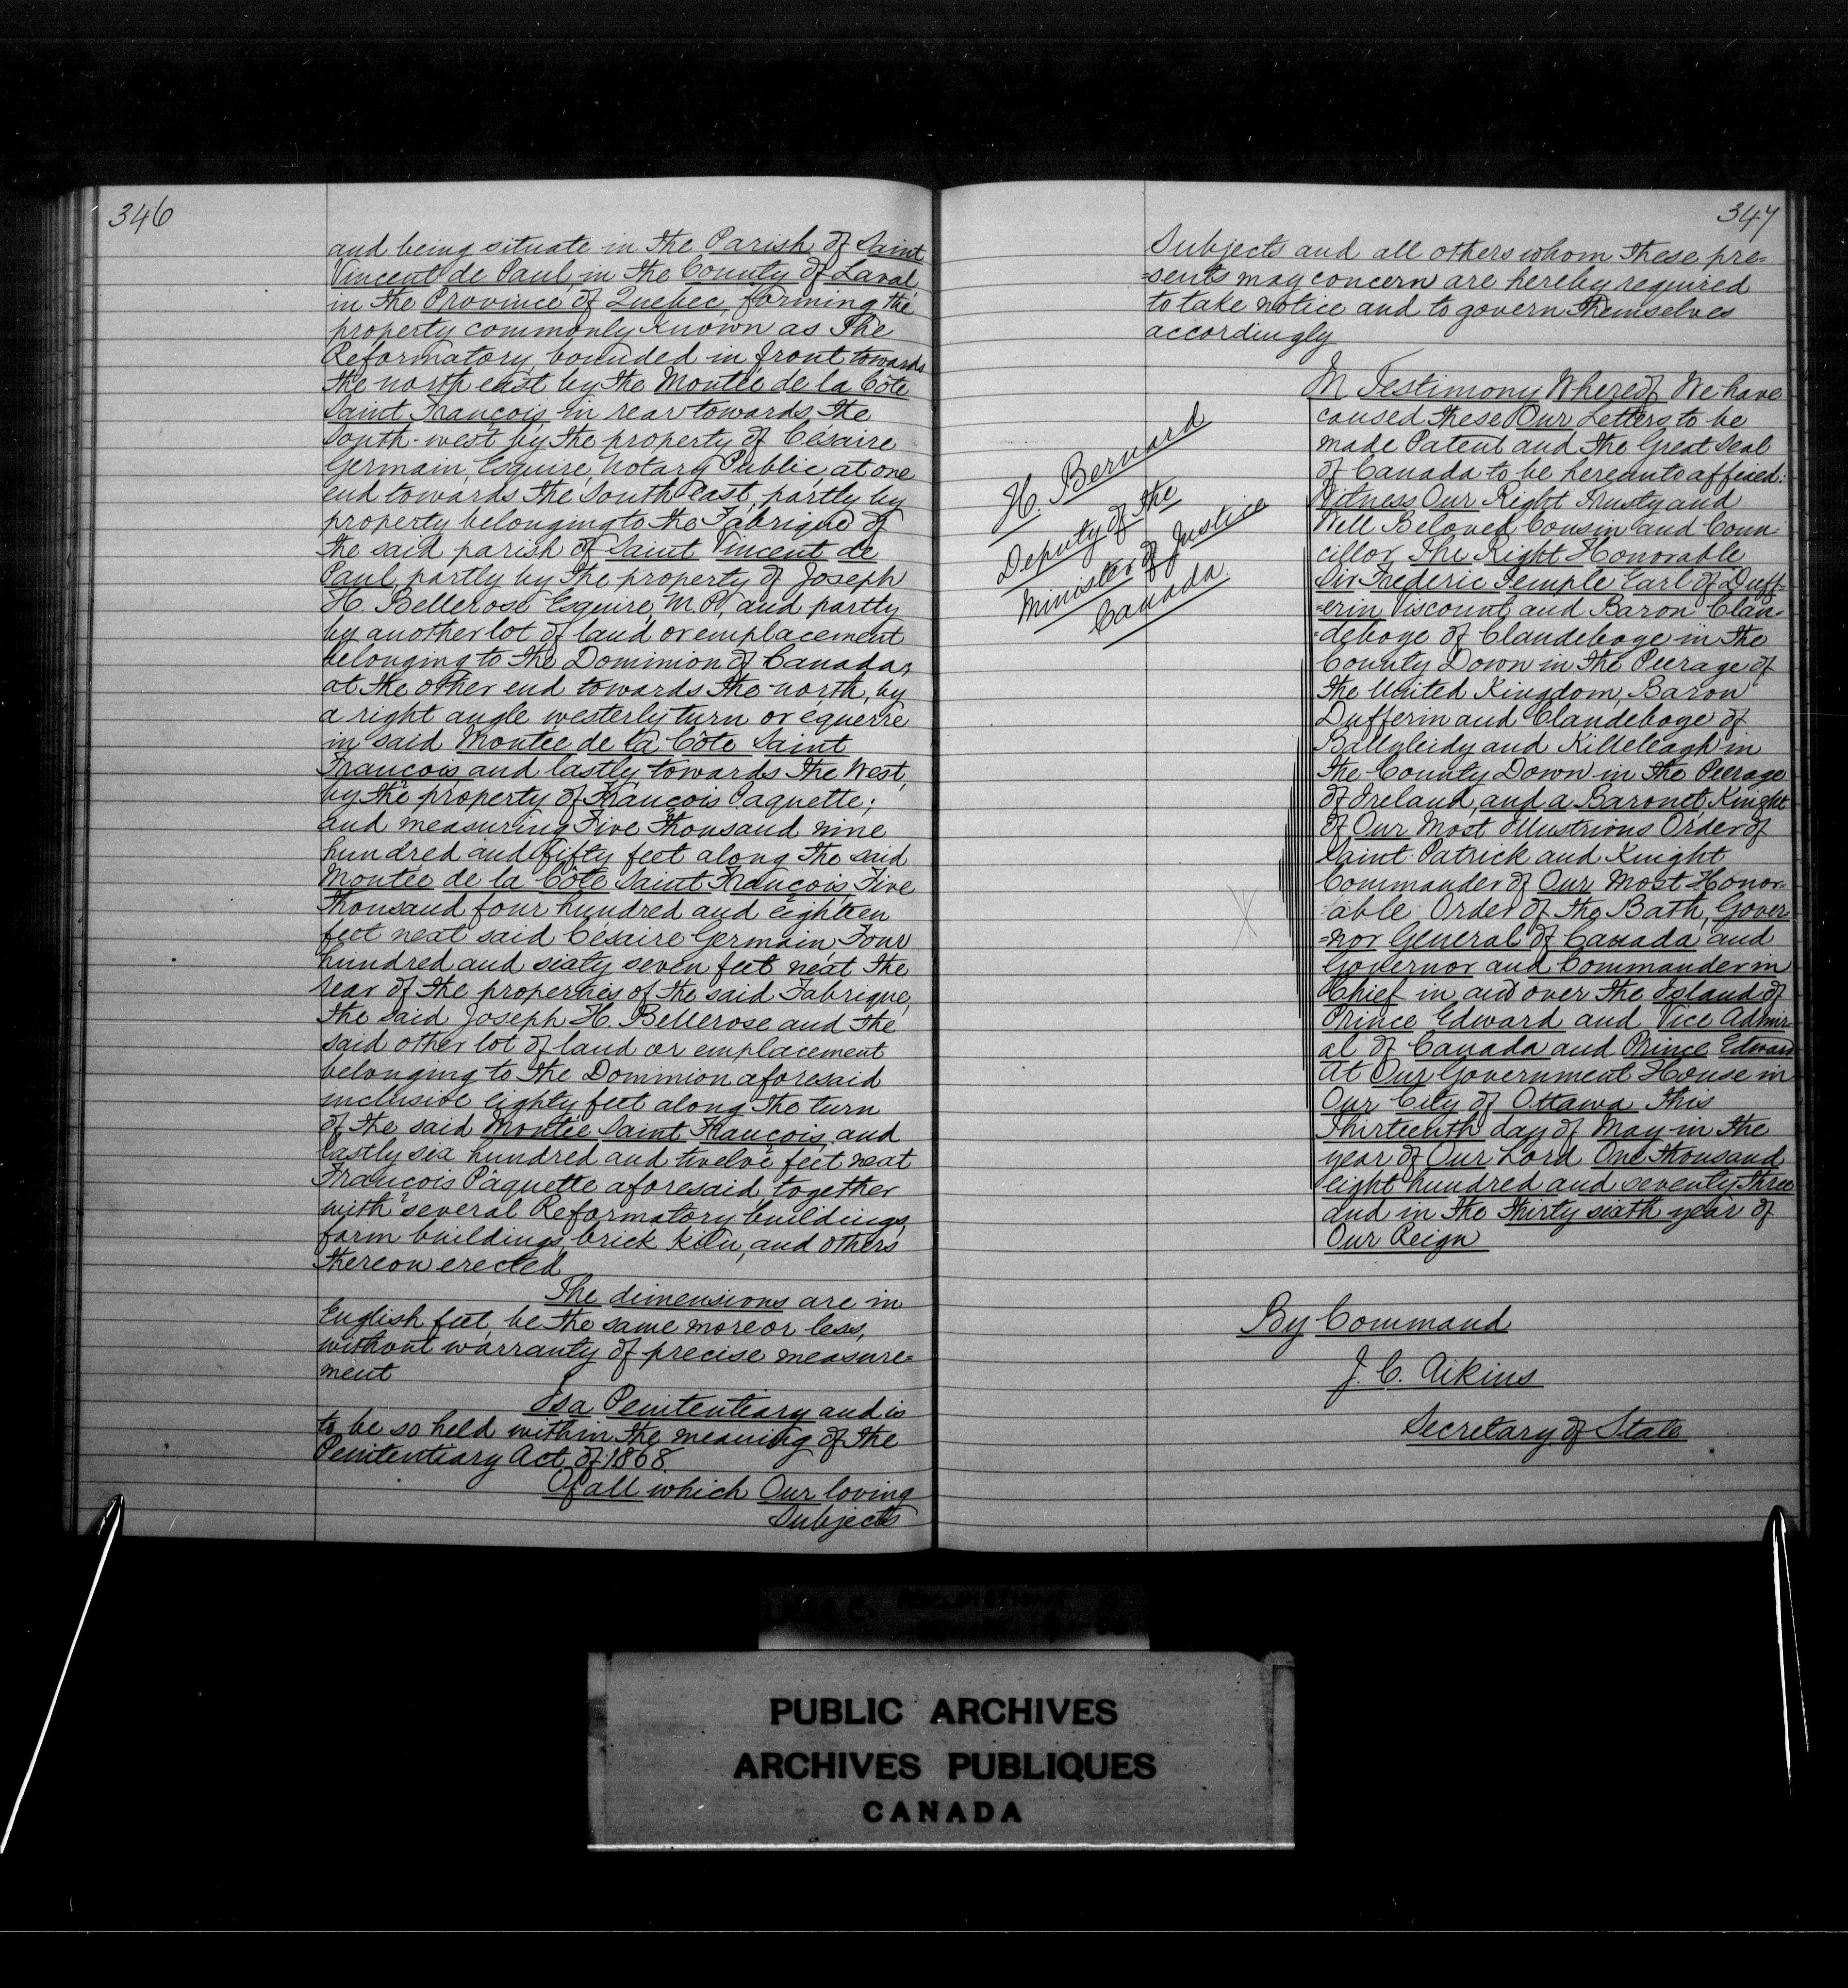 346
and being situate in the Parish of Saint
Vincent de Paul, in the County of Laval
in the Province of Quebec, forming the
property commonly known as The
Reformatory, bounded in front towards
the north east by the Montée de la Côte
Saint François, in rear towards the
South-west by the property of Césaire
Germain, Esquire, Notary Public, at one
end towards the South East, partly by
property belonging to the Fabrique of
the said parish of Saint Vincent de
Paul, partly by the property of Joseph
H. Bellerose Esquire, M.P., and partly
by another lot of land or emplacement
belonging to the Dominion of Canada,
at the other end towards the north, by
a right angle westerly turn or équerre
in said Montée de la Côte Saint
François, and lastly towards the West,
by the property of François Paquette;
and measuring Five Thousand nine
hundred and fifty feet along the said
Montée de la Côte Saint François, Five
Thousand four hundred and eighteen
feet neat said Césaire Germain, Four
hundred and sixty seven feet neat the
rear of the properties of the said Fabrique,
the said Joseph H. Bellerose and the
said other lot of land or emplacement
belonging to the Dominion aforesaid
inclusive eighty feet along the turn
of the said Montée Saint François, and
lastly six hundred and twelve feet neat
François Paquette aforesaid, together
with several Reformatory buildings,
farm buildings, brick kiln, and others
thereon erected
The dimensions are in
English feet, be the same more or less,
without warranty of precise measure=
ment
Is a Penitentiary and is
to be so held within the meaning of the
Penitentiary Act of 1868.
Of all which Our loving
Subjects
347
Subjects and all others whom these pre=
=sents may concern are hereby required
to take notice and to govern themselves
accordingly
H. Bernard
Deputy of the
Minister of Justice
Canada.
In Testimony Whereof We have
caused these Our Letters to be
made Patent and the Great Seal
of Canada to be hereunto affixed:
Witness Our Right Trusty and
Well Beloved Cousin and Coun-
cillor The Right Honorable
Sir Frederic Temple Earl of Duff=
=erin Viscount and Baron Clan=
=deboye of Clandeboye in the
County Down in the Peerage of
the United Kingdom, Baron
Dufferin and Clandeboye of
Ballyleidy and Killeleagh in
the County Down in the Peerage
of Ireland, and a Baronet, Knight
of Our Most Illustrious Order of
Saint Patrick and Knight
Commander of Our Most Honor=
able Order of the Bath, Gover=
=nor General of Canada and
Governor and Commander in
Chief in and over the Island of
Prince Edward and Vice Admir-
al of Canada and Prince Edward
At Our Government House in
Our City of Ottawa this
Thirteenth day of May in the
year of Our Lord One thousand
eight hundred and seventy three
and in the thirty sixth year of
Our Reign
By Command
J. C. Aikins
Secretary of State
PUBLIC ARCHIVES
ARCHIVES PUBLIQUES
CANADA